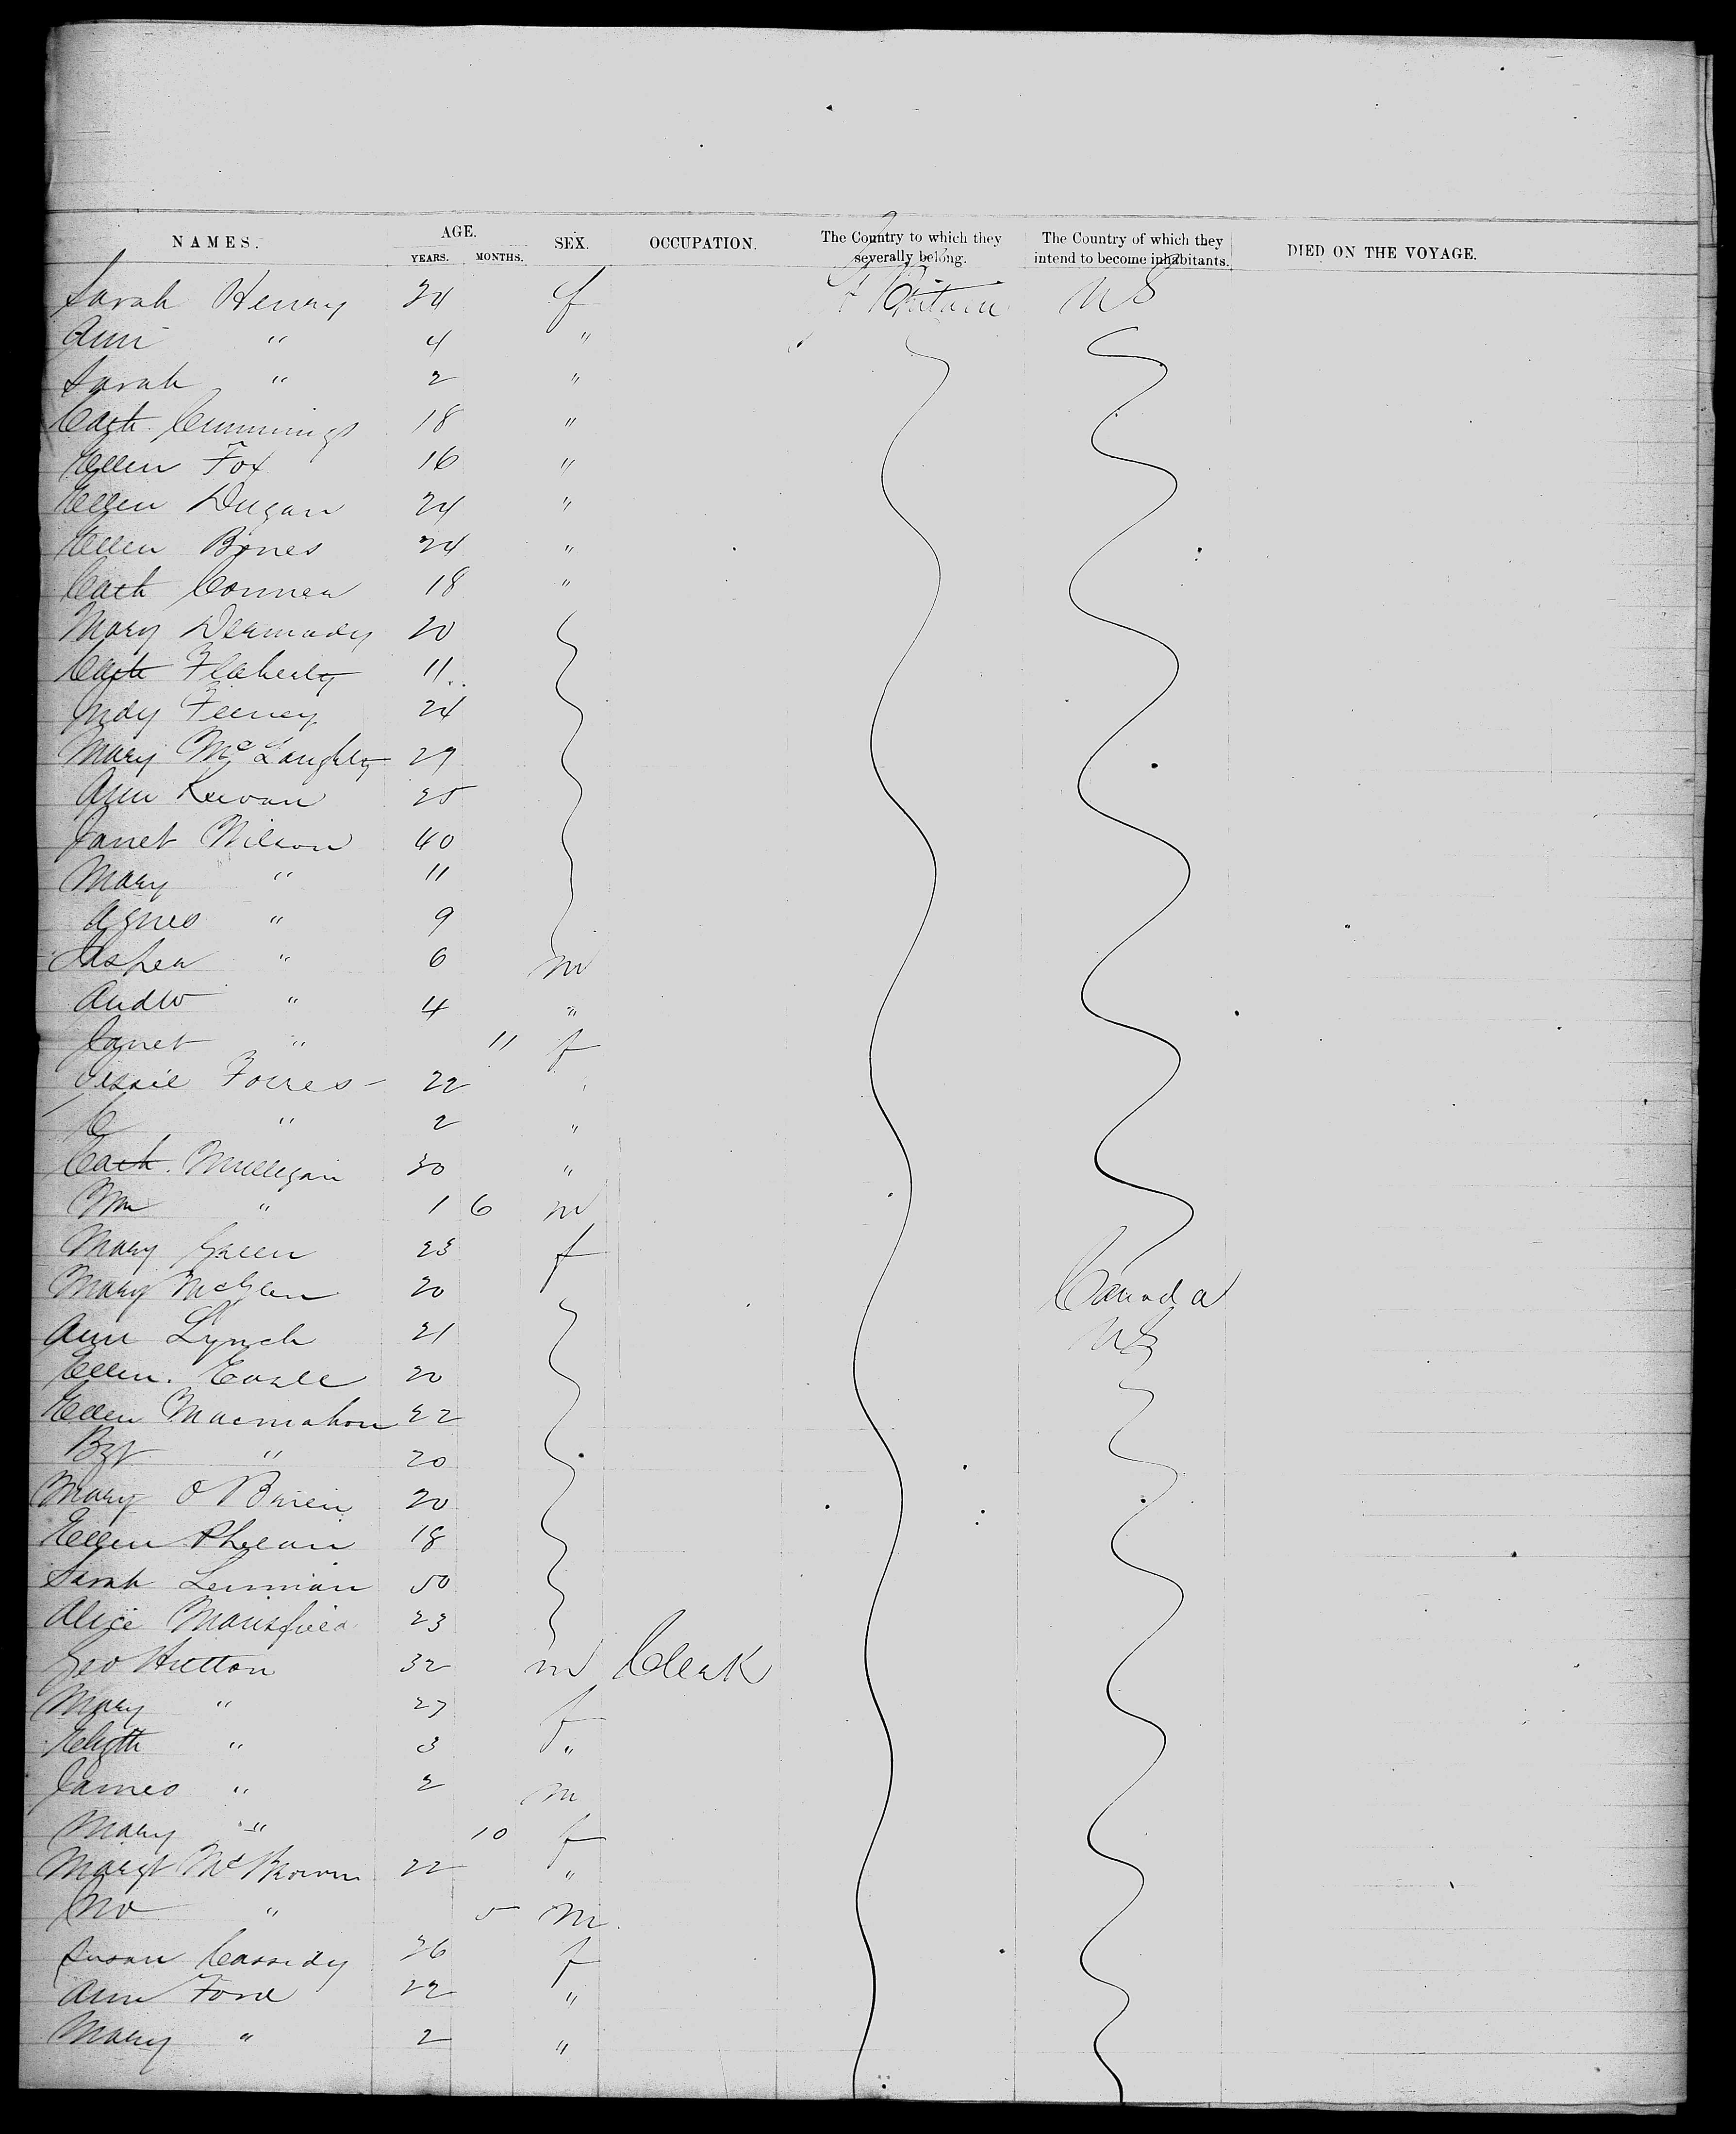 NAMES. AGE. YEARS. MONTHS. SEX. OCCUPATION. The Country to which they severally belong. The Country of which they intend to become inhabitants. DIED ON THE VOYAGE.
Sarah Henry 24 f Gt Britain US
Ann " 4 "
Sarah " 2 "
Cath. Cummings 18 "
Ellen Fox 16 "
Ellen Dugan 24 "
Ellen Bones 24 "
Cath Connea 18 "
Mary Dermody 20
Cath Flaherty 11
Judy Feeney 24
Mary McLaughlin 29
Ann Keevan 25
Janet Wilson 40
Mary " 11
Agnes " 9
Jasper " 6 m
Andw " 4 "
Janet " 11 f
Jessie Forres 22
C " 2 "
Cath. Mulligan 30 "
Wm " 1 6 m
Mary Green 23 f
Mary McGlen 20 Canada
Ann Lynch 21 US
Ellen. 20
Ellen Macmahon 22
Bgt " 20
Mary O Brien 20
Ellen Phelan 18
Sarah Lennian 50
Alice Mansfield 23
Geo Hutton 32 m Clerk
Mary " 27 f
Elizth " 3 "
James " 2 m
Mary " 10 f
Margt McBrown 22 "
Jno " 5 m
Susan Cassidy 26 f
Ann Ford 22 "
Mary " 2 "